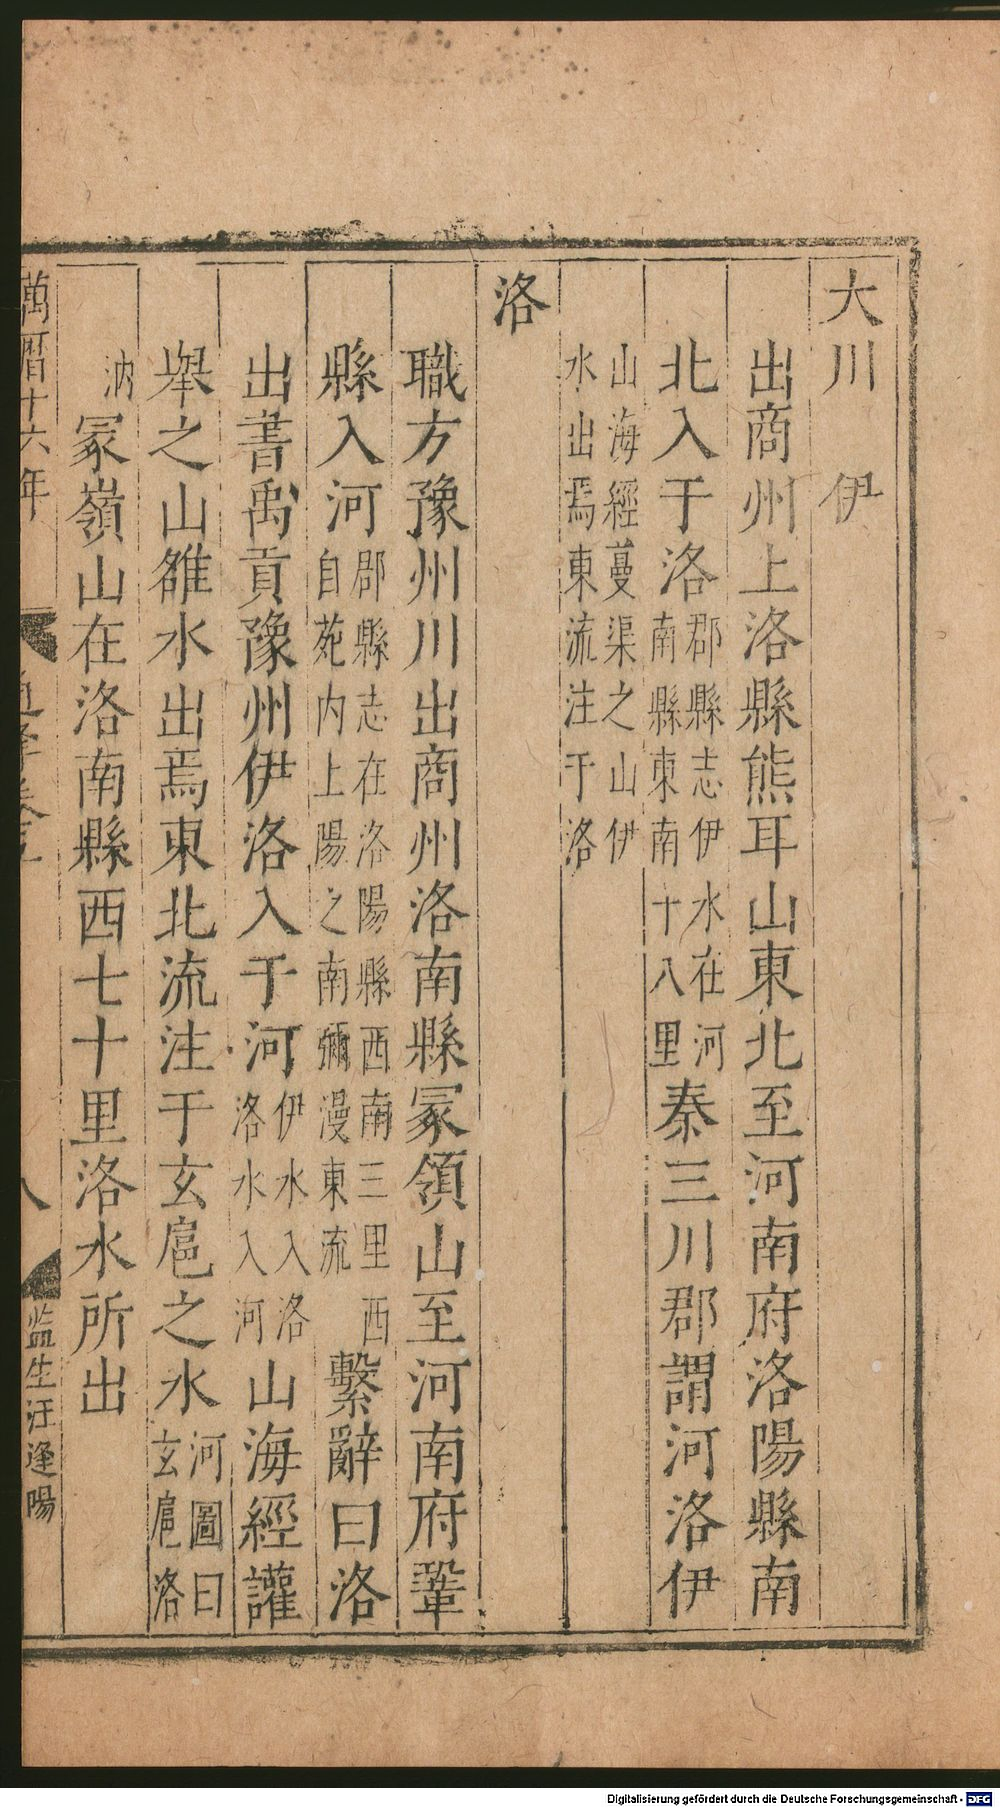 大川　伊
出商州上洛縣熊耳山東北至河南府洛陽縣南
北入于洛郡縣志伊水在河南縣東南十八里秦三川郡謂河洛伊
山海經蔓渠之山伊水出焉東流注于洛
洛
職方豫州川出商州洛南縣冢領山至河南府鞏
縣入河郡縣志在洛陽縣西南三里西自苑内上陽之南彌漫東流繫辭曰洛
出書禹貢豫州伊洛入于河伊水入洛洛水入河山海經讙
舉之山雒水出焉東北流注于玄扈之水河圖曰玄扈洛
汭冢嶺山在洛南縣西七十里洛水所出
萬曆十六年
八
監生汪逢陽
Digitalisierung gefördert durch die Deutsche Forschungsgemeinschaft - DFG